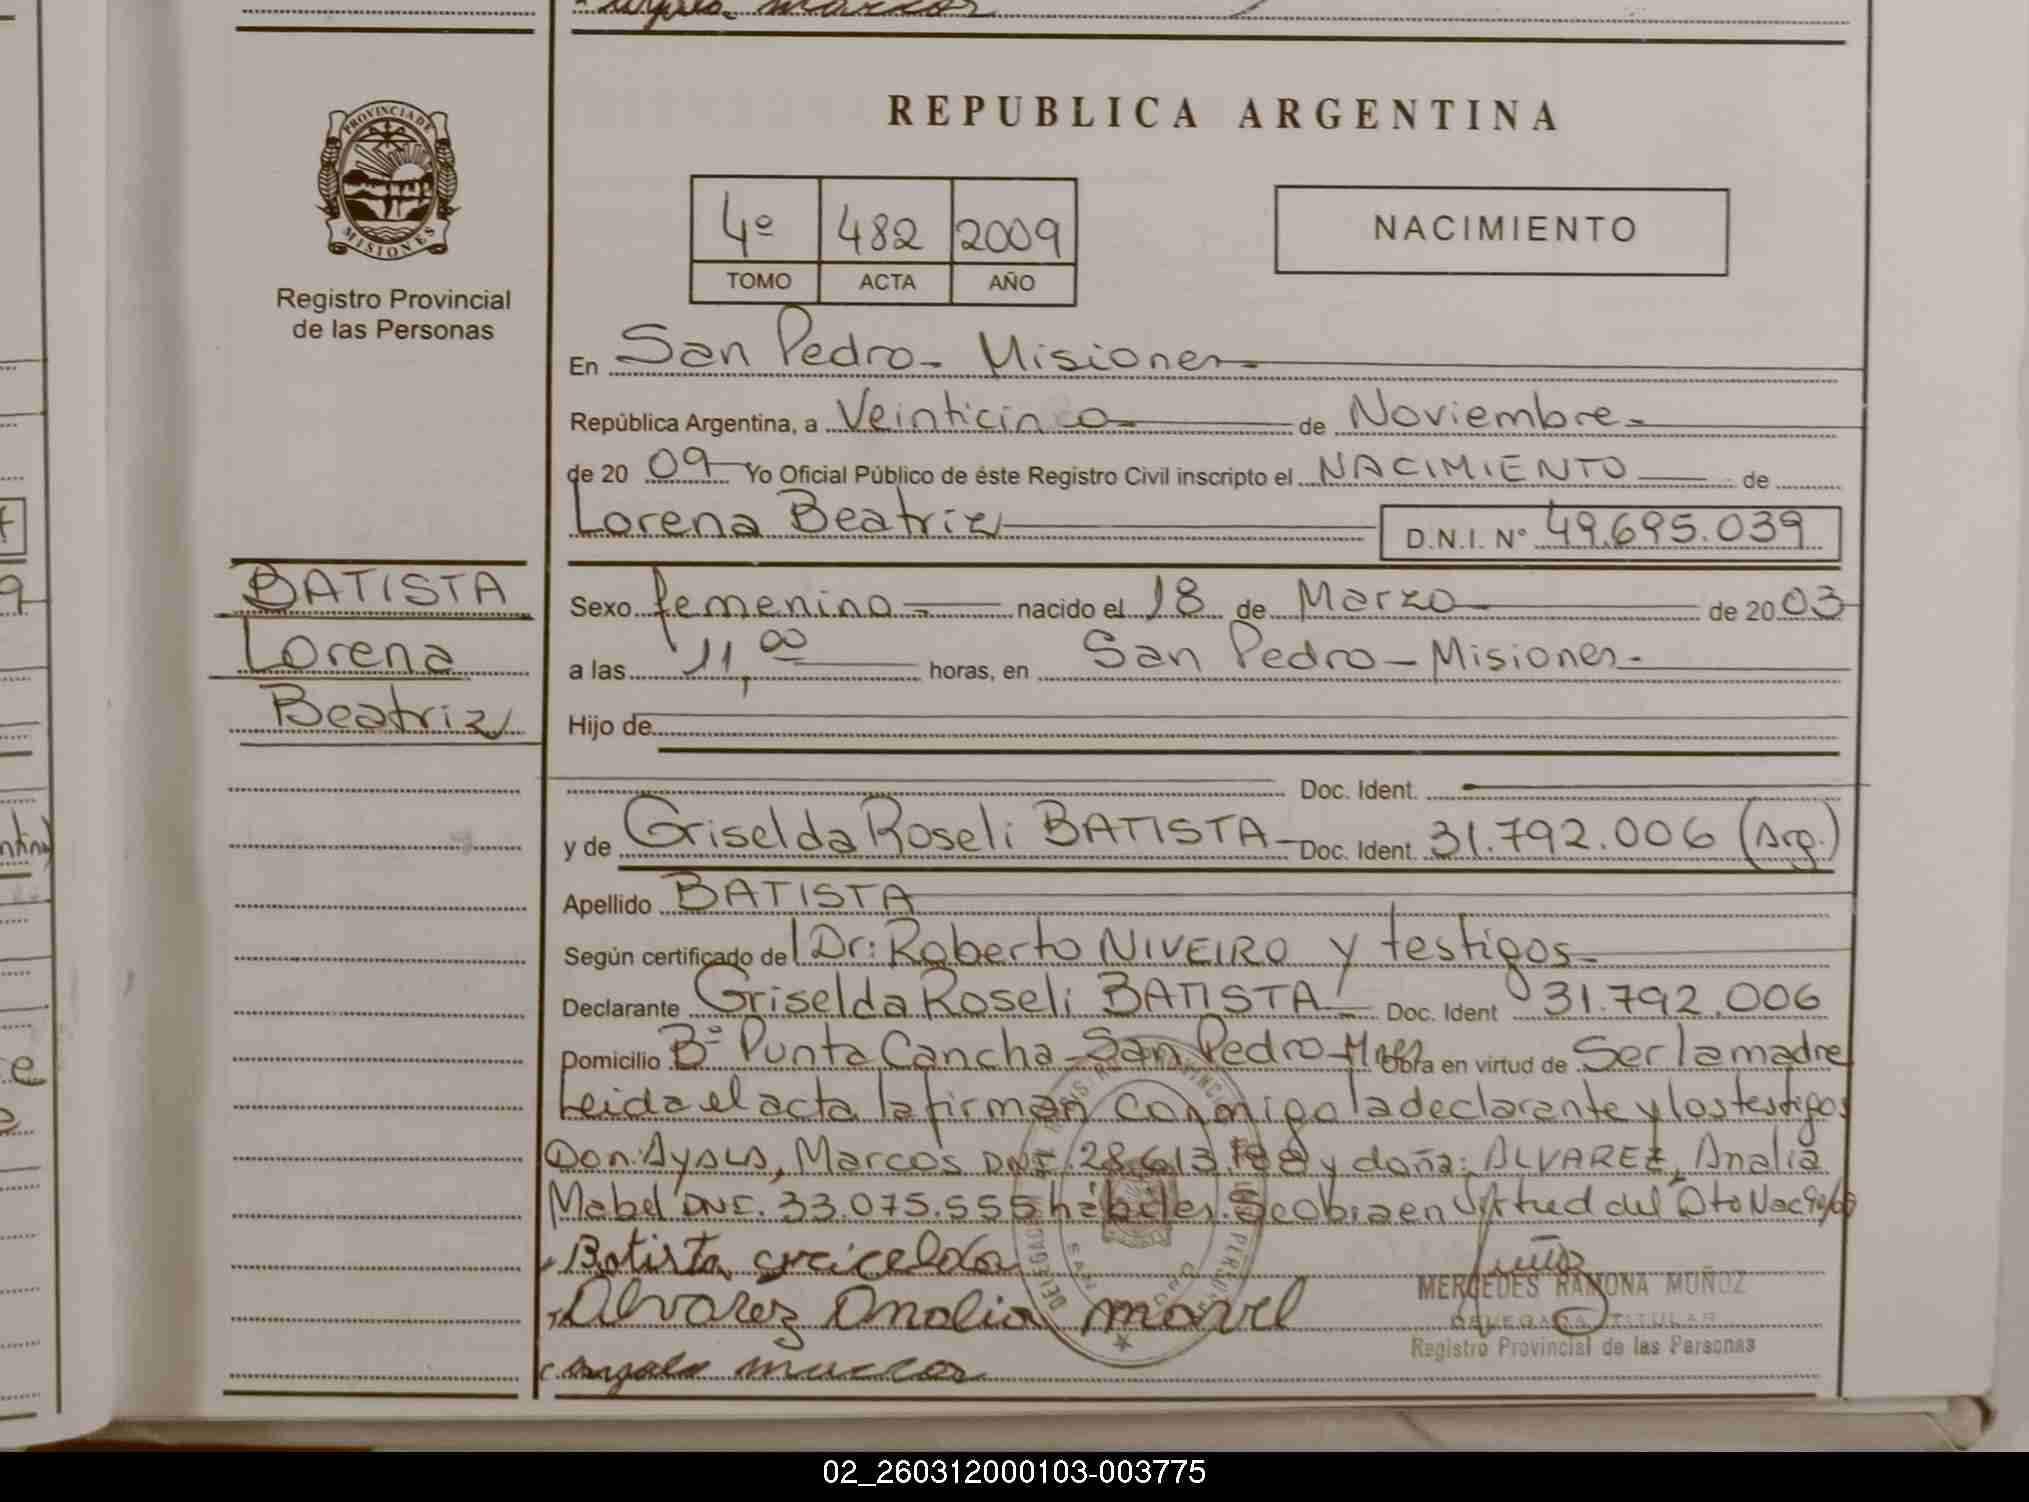 REPUBLICA ARGENTINA
PROVINCIA DE MISIONES
Registro Provincial
de las Personas
4º 482 2009
TOMO ACTA AÑO
NACIMIENTO
En San Pedro - Misiones
República Argentina, a Veinticinco de Noviembre
de 20 09 Yo Oficial Público de éste Registro Civil inscripto el NACIMIENTO de
Lorena Beatriz D.N.I. Nº 49.695.039
BATISTA
Lorena
Beatriz
Sexo femenino nacido el 18 de Marzo de 20 03
a las 11,00 horas, en San Pedro - Misiones -
Hijo de
Doc. Ident.
y de Griselda Roseli BATISTA - Doc. Ident. 31.792.006 (Arg.)
Apellido BATISTA
Según certificado del Dr: Roberto NIVEIRO y testigos
Declarante Griselda Roseli BATISTA - Doc. Ident 31.792.006
Domicilio Bº Punta Cancha - San Pedro - Mnes Obra en virtud de Ser la madre
Leida el acta la firman conmigo la declarante y los testigos
Don: AYALA, Marcos DNI 28.613. y doña: ALVAREZ, Analia
Mabel DNI. 33.075.555 hábiles. Se obra en Virtud del Dto Nac
Batista griselda
Alvarez Analia mavel
marcos
MERCEDES RAMONA MUÑOZ
DELEGADA TITULAR
Registro Provincial de las Personas
02_260312000103-003775